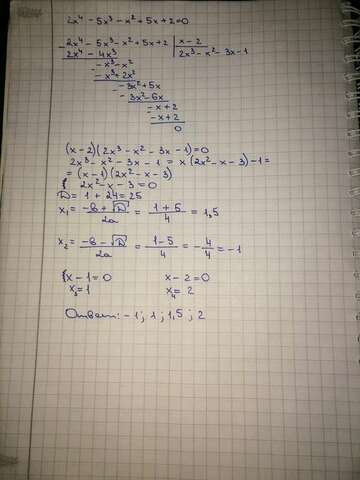 2x⁴ - 5x³ - x² + 5x + 2 = 0
2x⁴ - 5x³ - x² + 5x + 2 | x - 2
2x⁴ - 4x³ | 2x³ - x² - 3x - 1
- x³ - x²
- x³ + 2x²
- 3x² + 5x
- 3x² - 6x
- x + 2
- x + 2
0
(x - 2)(2x³ - x² - 3x - 1) = 0
2x³ - x² - 3x - 1 = x(2x² - x - 3) - 1 =
= (x - 1)(2x² - x - 3)
2x² - x - 3 = 0
D = 1 + 24 = 25
x₁ = (-в + √D)/2a = (1 + 5)/4 = 1,5
x₂ = (-в - √D)/2a = (1 - 5)/4 = -4/4 = -1
x - 1 = 0 x - 2 = 0
x₃ = 1 x₄ = 2
Ответ: -1; 1; 1,5; 2